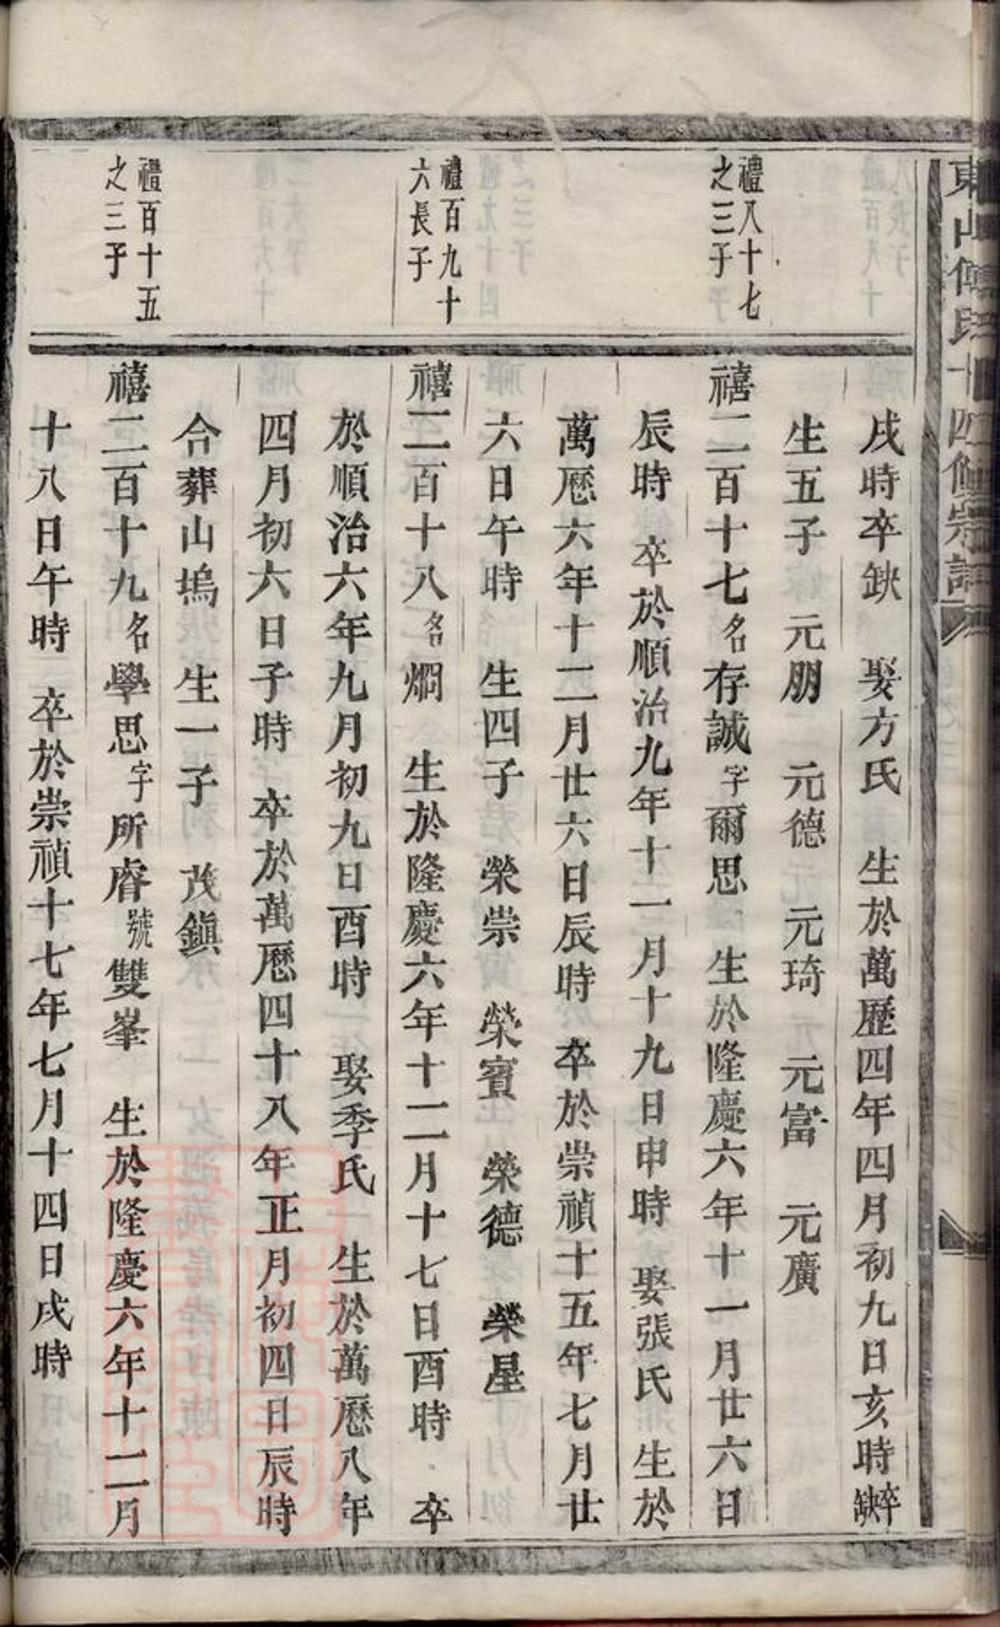 東山傅氏十四修宗譜
戌時卒缺　娶方氏　生於萬歷四年四月初九日亥時卒缺
生五子　元朋　元德　元琦　元富　元廣
禮八十七之三子
禧二百十七名存誠字爾思　生於隆慶六年十一月廿六日
辰時　卒於順治九年十一月十九日申時　娶張氏　生於
萬曆六年十二月廿六日辰時　卒於崇禎十五年七月廿
六日午時　生四子　榮崇　榮賓　榮德　榮星
禮百九十六長子
禧二百十八名烱　生於隆慶六年十二月十七日酉時　卒
於順治六年九月初九日酉時　娶季氏　生於萬曆八年
四月初六日子時　卒於萬曆四十八年正月初四日辰時
合葬山塢　生一子　茂鎮
禮百十五之三子
禧二百十九名學思字所睿號雙峯　生於隆慶六年十二月
十八日午時　卒於崇禎十七年七月十四日戌時